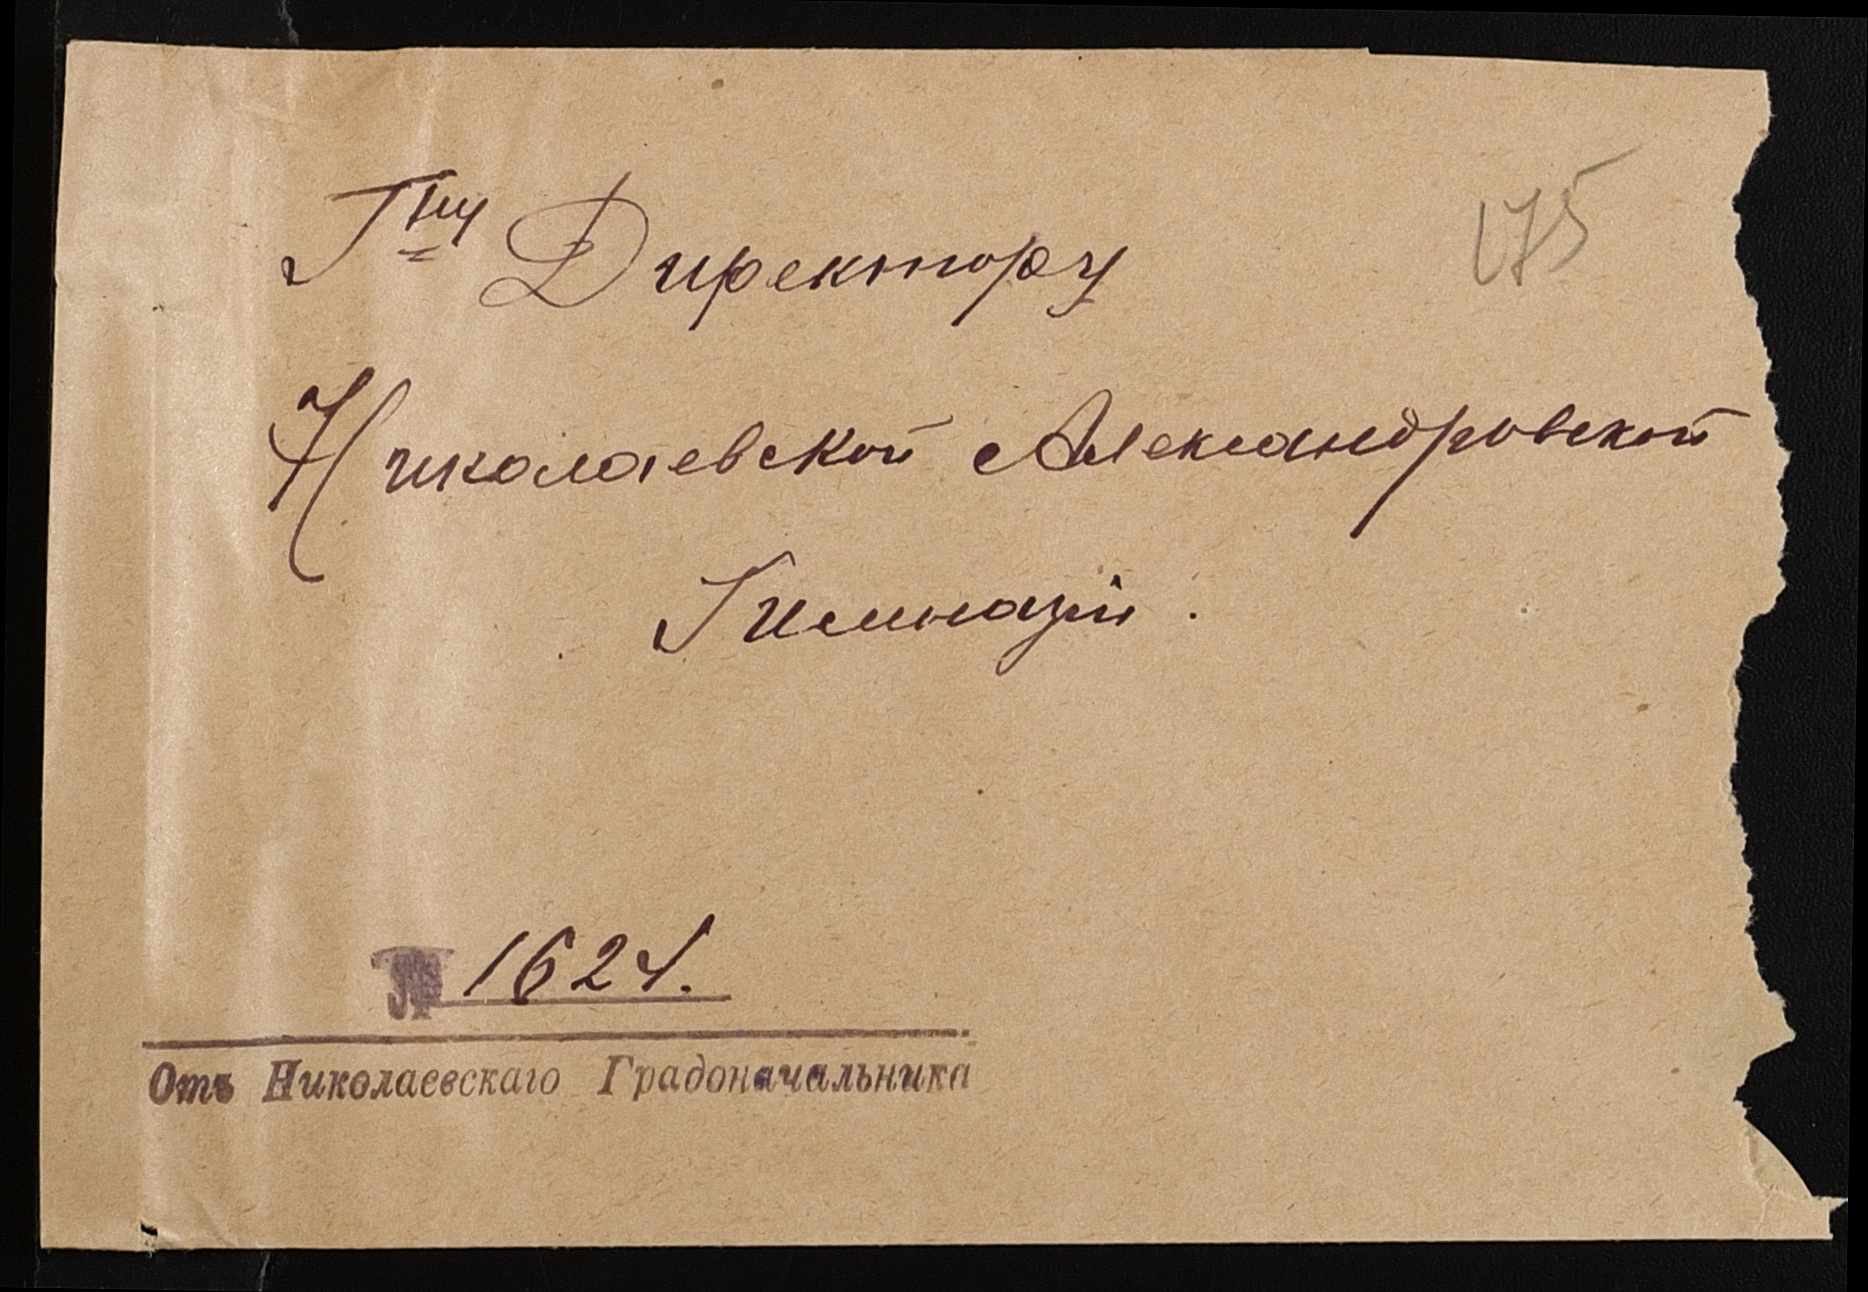 Гну Директору
175
Николаевской Александровской
Гимназіи.
№ 1624.
Отъ Николаевскаго Градоначальника